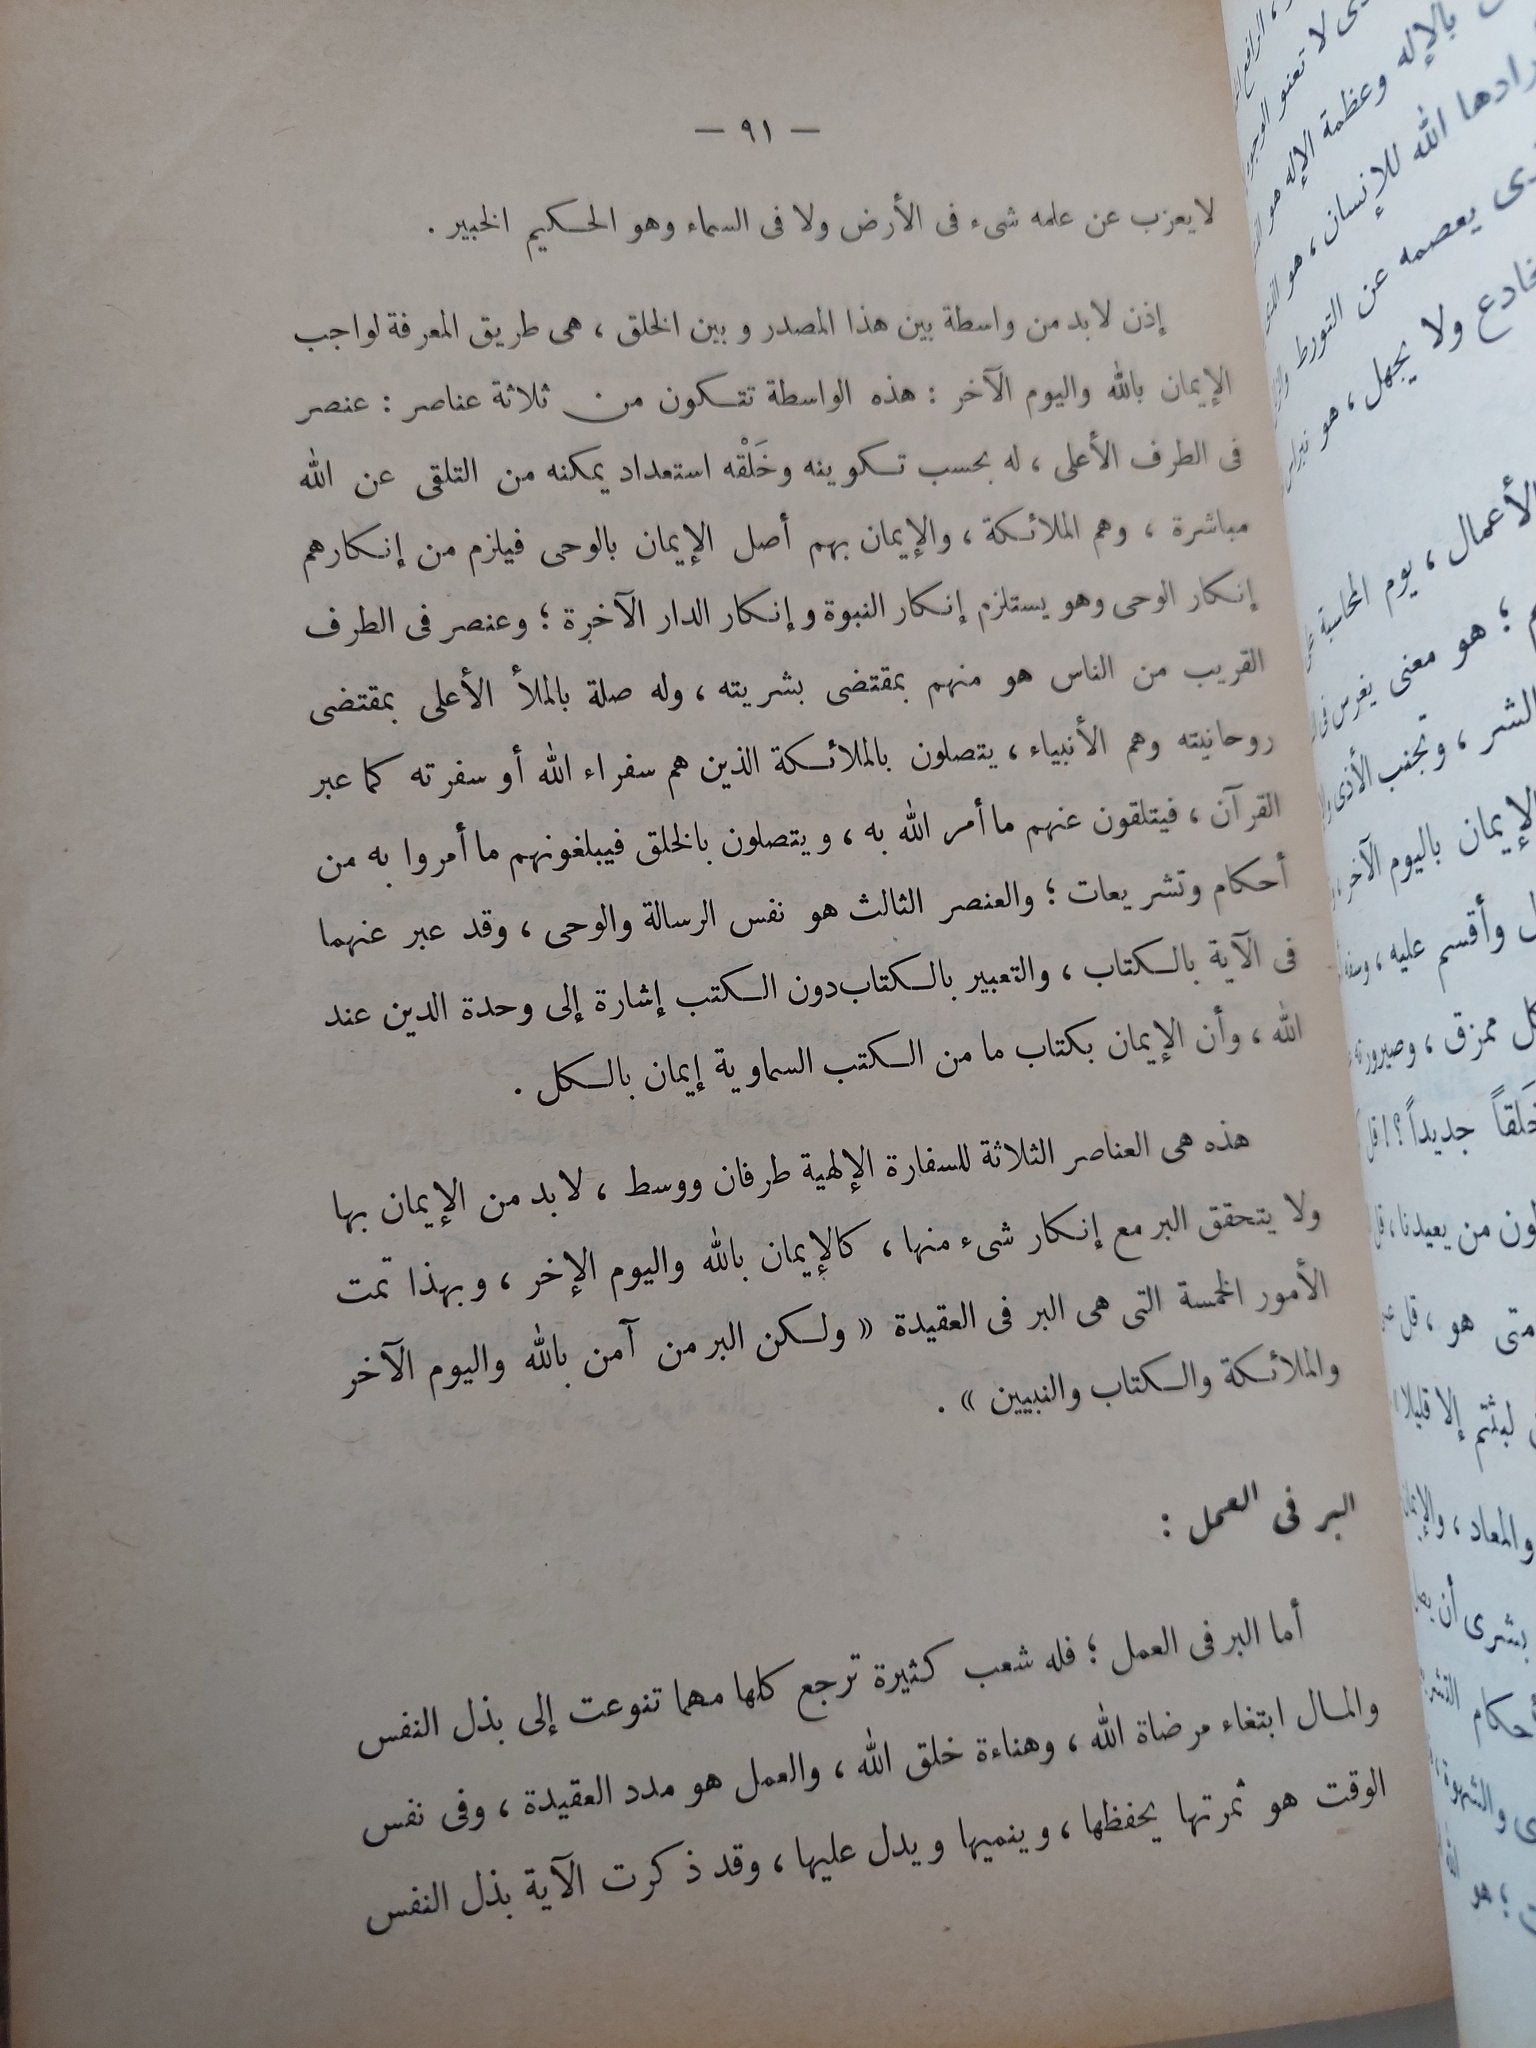 — ٩١ —
لا يعزب عن علمه شىء فى الأرض ولا فى السماء وهو الحكيم الخبير .
إذن لابد من واسطة بين هذا المصدر وبين الخلق ، هى طريق المعرفة لواجب
الإيمان بالله واليوم الآخر : هذه الواسطة تتكون من ثلاثة عناصر : عنصر
فى الطرف الأعلى ، له بحسب تكوينه وخَلْقه استعداد يمكنه من التلقى عن الله
مباشرة ، وهم الملائكة ، والإيمان بهم أصل الإيمان بالوحى فيلزم من إنكارهم
إنكار الوحى وهو يستلزم إنكار النبوة وإنكار الدار الآخرة ؛ وعنصر فى الطرف
القريب من الناس هو منهم بمقتضى بشريته ، وله صلة بالملأ الأعلى بمقتضى
روحانيته وهم الأنبياء ، يتصلون بالملائكة الذين هم سفراء الله أو سفرته كما عبر
القرآن ، فيتلقون عنهم ما أمر الله به ، ويتصلون بالخلق فيبلغونهم ما أمروا به من
أحكام وتشريعات ؛ والعنصر الثالث هو نفس الرسالة والوحى ، وقد عبر عنهما
فى الآية بالكتاب ، والتعبير بالكتاب دون الكتب إشارة إلى وحدة الدين عند
الله ، وأن الإيمان بكتاب ما من الكتب السماوية إيمان بالكل .
هذه هى العناصر الثلاثة للسفارة الإلهية طرفان ووسط ، لابد من الإيمان بها
ولا يتحقق البر مع إنكار شىء منها ، كالإيمان بالله واليوم الإخر ، وبهذا تمت
الأمور الخمسة التى هى البر فى العقيدة « ولكن البر من آمن بالله واليوم الآخر
والملائكة والكتاب والنبيين » .
البر فى العمل :
أما البر فى العمل ؛ فله شعب كثيرة ترجع كلها مهما تنوعت إلى بذل النفس
والمال ابتغاء مرضاة الله ، وهناءة خلق الله ، والعمل هو مدد العقيدة ، وفى نفس
الوقت هو ثمرتها يحفظها ، وينميها ويدل عليها ، وقد ذكرت الآية بذل النفس
بالإله وعظمة الإله هو
الله للإنسان ، هو
يعصمه عن التورط
ولا يجهل ، هو نبراس
الأعمال ، يوم المحاسبة
؛ هو معنى يغرس فى
الشر ، وتجنب الأذى
الإيمان باليوم الآخر
وأقسم عليه ،
كل ممزق ،
خَلقاً جديداً ؟ !
من يعيدنا ، قل
متى هو ، قل
لبثتم إلا قليلا
والمعاد ،
بشرى أن